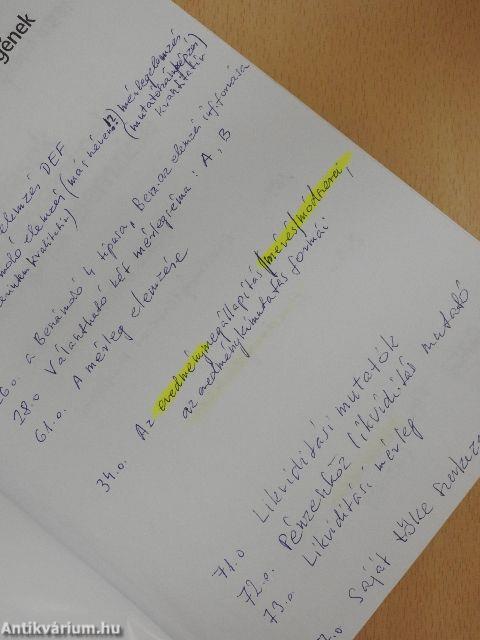 gének
elemzés DEF
moló elemzés (más néven!?) mérlegelemzés
(mutatószámképzés)
kvantitatív
26.o. a Beszámoló 4 típusa, Besz. az elemzés inf. forrása
28.o Választható két mérlegséma: A, B
61.o. A mérleg elemzése
34.o. Az eredménymegállapítás/mérés/módszerei,
az eredménykimutatás formái
71.o Likviditási mutatók
72.o. Pénzeszköz likviditás mutató
73.o. Likviditási mérleg
Saját tőke
Antikvárium.hu